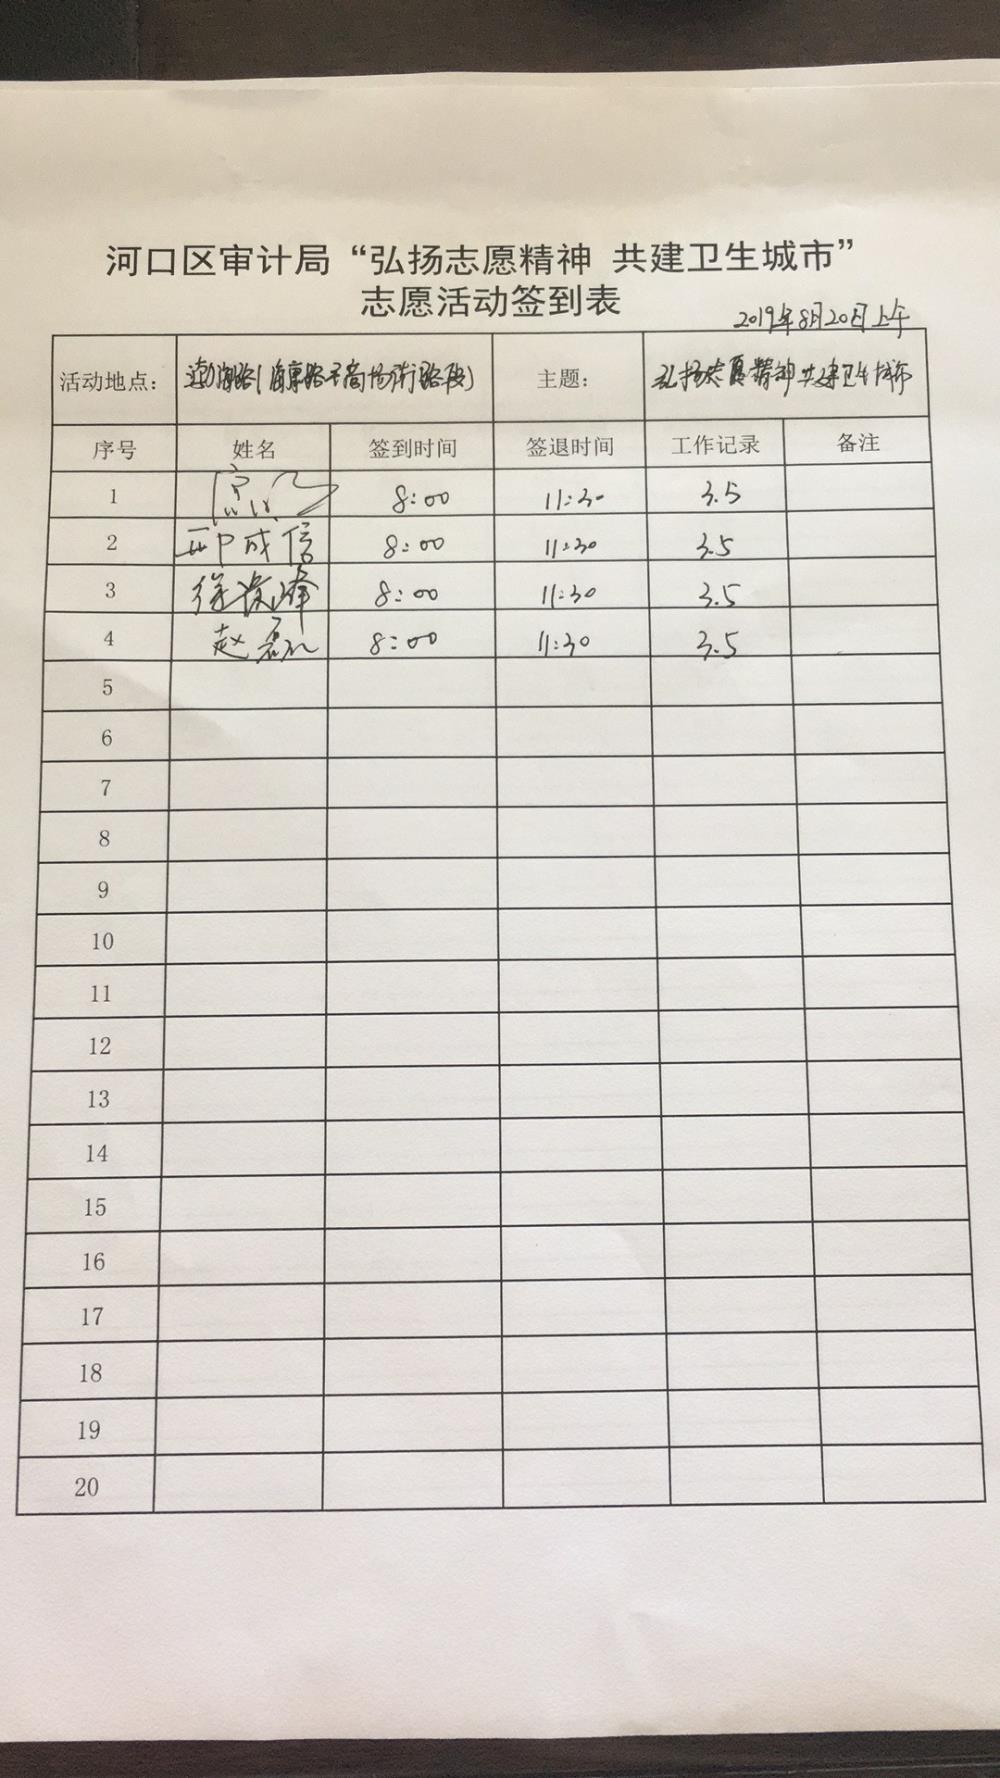 河口区审计局“弘扬志愿精神 共建卫生城市”
志愿活动签到表
2019年8月20日上午
活动地点： 渤海路（ 路 商场街路段） 主题： 弘扬志愿精神共建卫生城市
序号 姓名 签到时间 签退时间 工作记录 备注
1 8:00 11:30 3.5
2 成信 8:00 11:30 3.5
3 徐 峰 8:00 11:30 3.5
4 赵磊 8:00 11:30 3.5
5
6
7
8
9
10
11
12
13
14
15
16
17
18
19
20